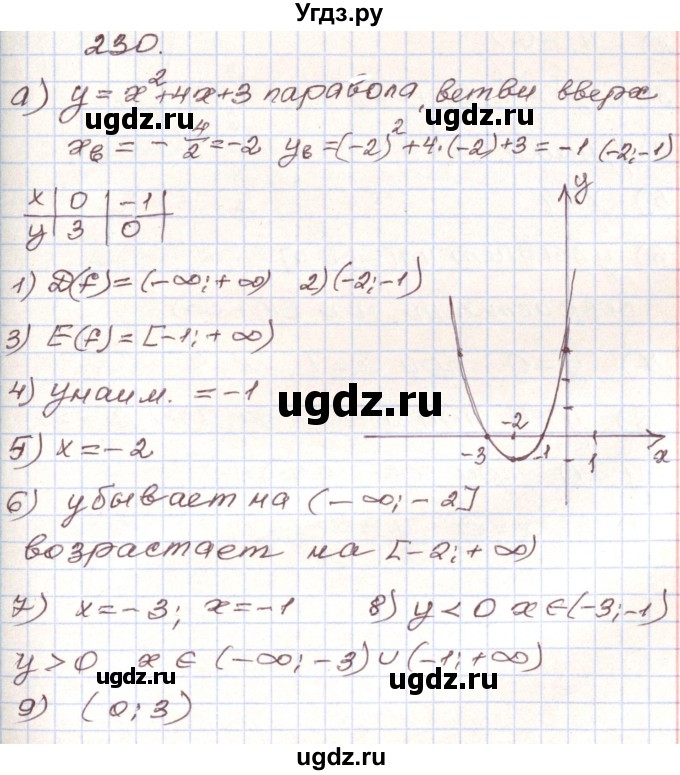 Угдз.ру
230.
а) y = x²+4x+3 парабола, ветви вверх
xв = - 4/2 = -2 yв = (-2)² + 4·(-2)+3 = -1 (-2;-1)
x | 0 | -1
y | 3 | 0
1) D(f) = (-∞;+∞) 2) (-2;-1)
3) E(f) = [-1;+∞)
4) yнаим. = -1
5) x = -2
6) убывает на (-∞;-2]
возрастает на [-2;+∞)
7) x = -3; x = -1 8) y < 0 x ∈ (-3;-1)
y > 0 x ∈ (-∞;-3) ∪ (-1;+∞)
9) (0;3)
y
-2
-3 -1 1 x
ugdz.ru
ugdz.ru
ugdz.ru
ugdz.ru
ugdz.ru
ugdz.ru
ugdz.ru
ugdz.ru
ugdz.ru